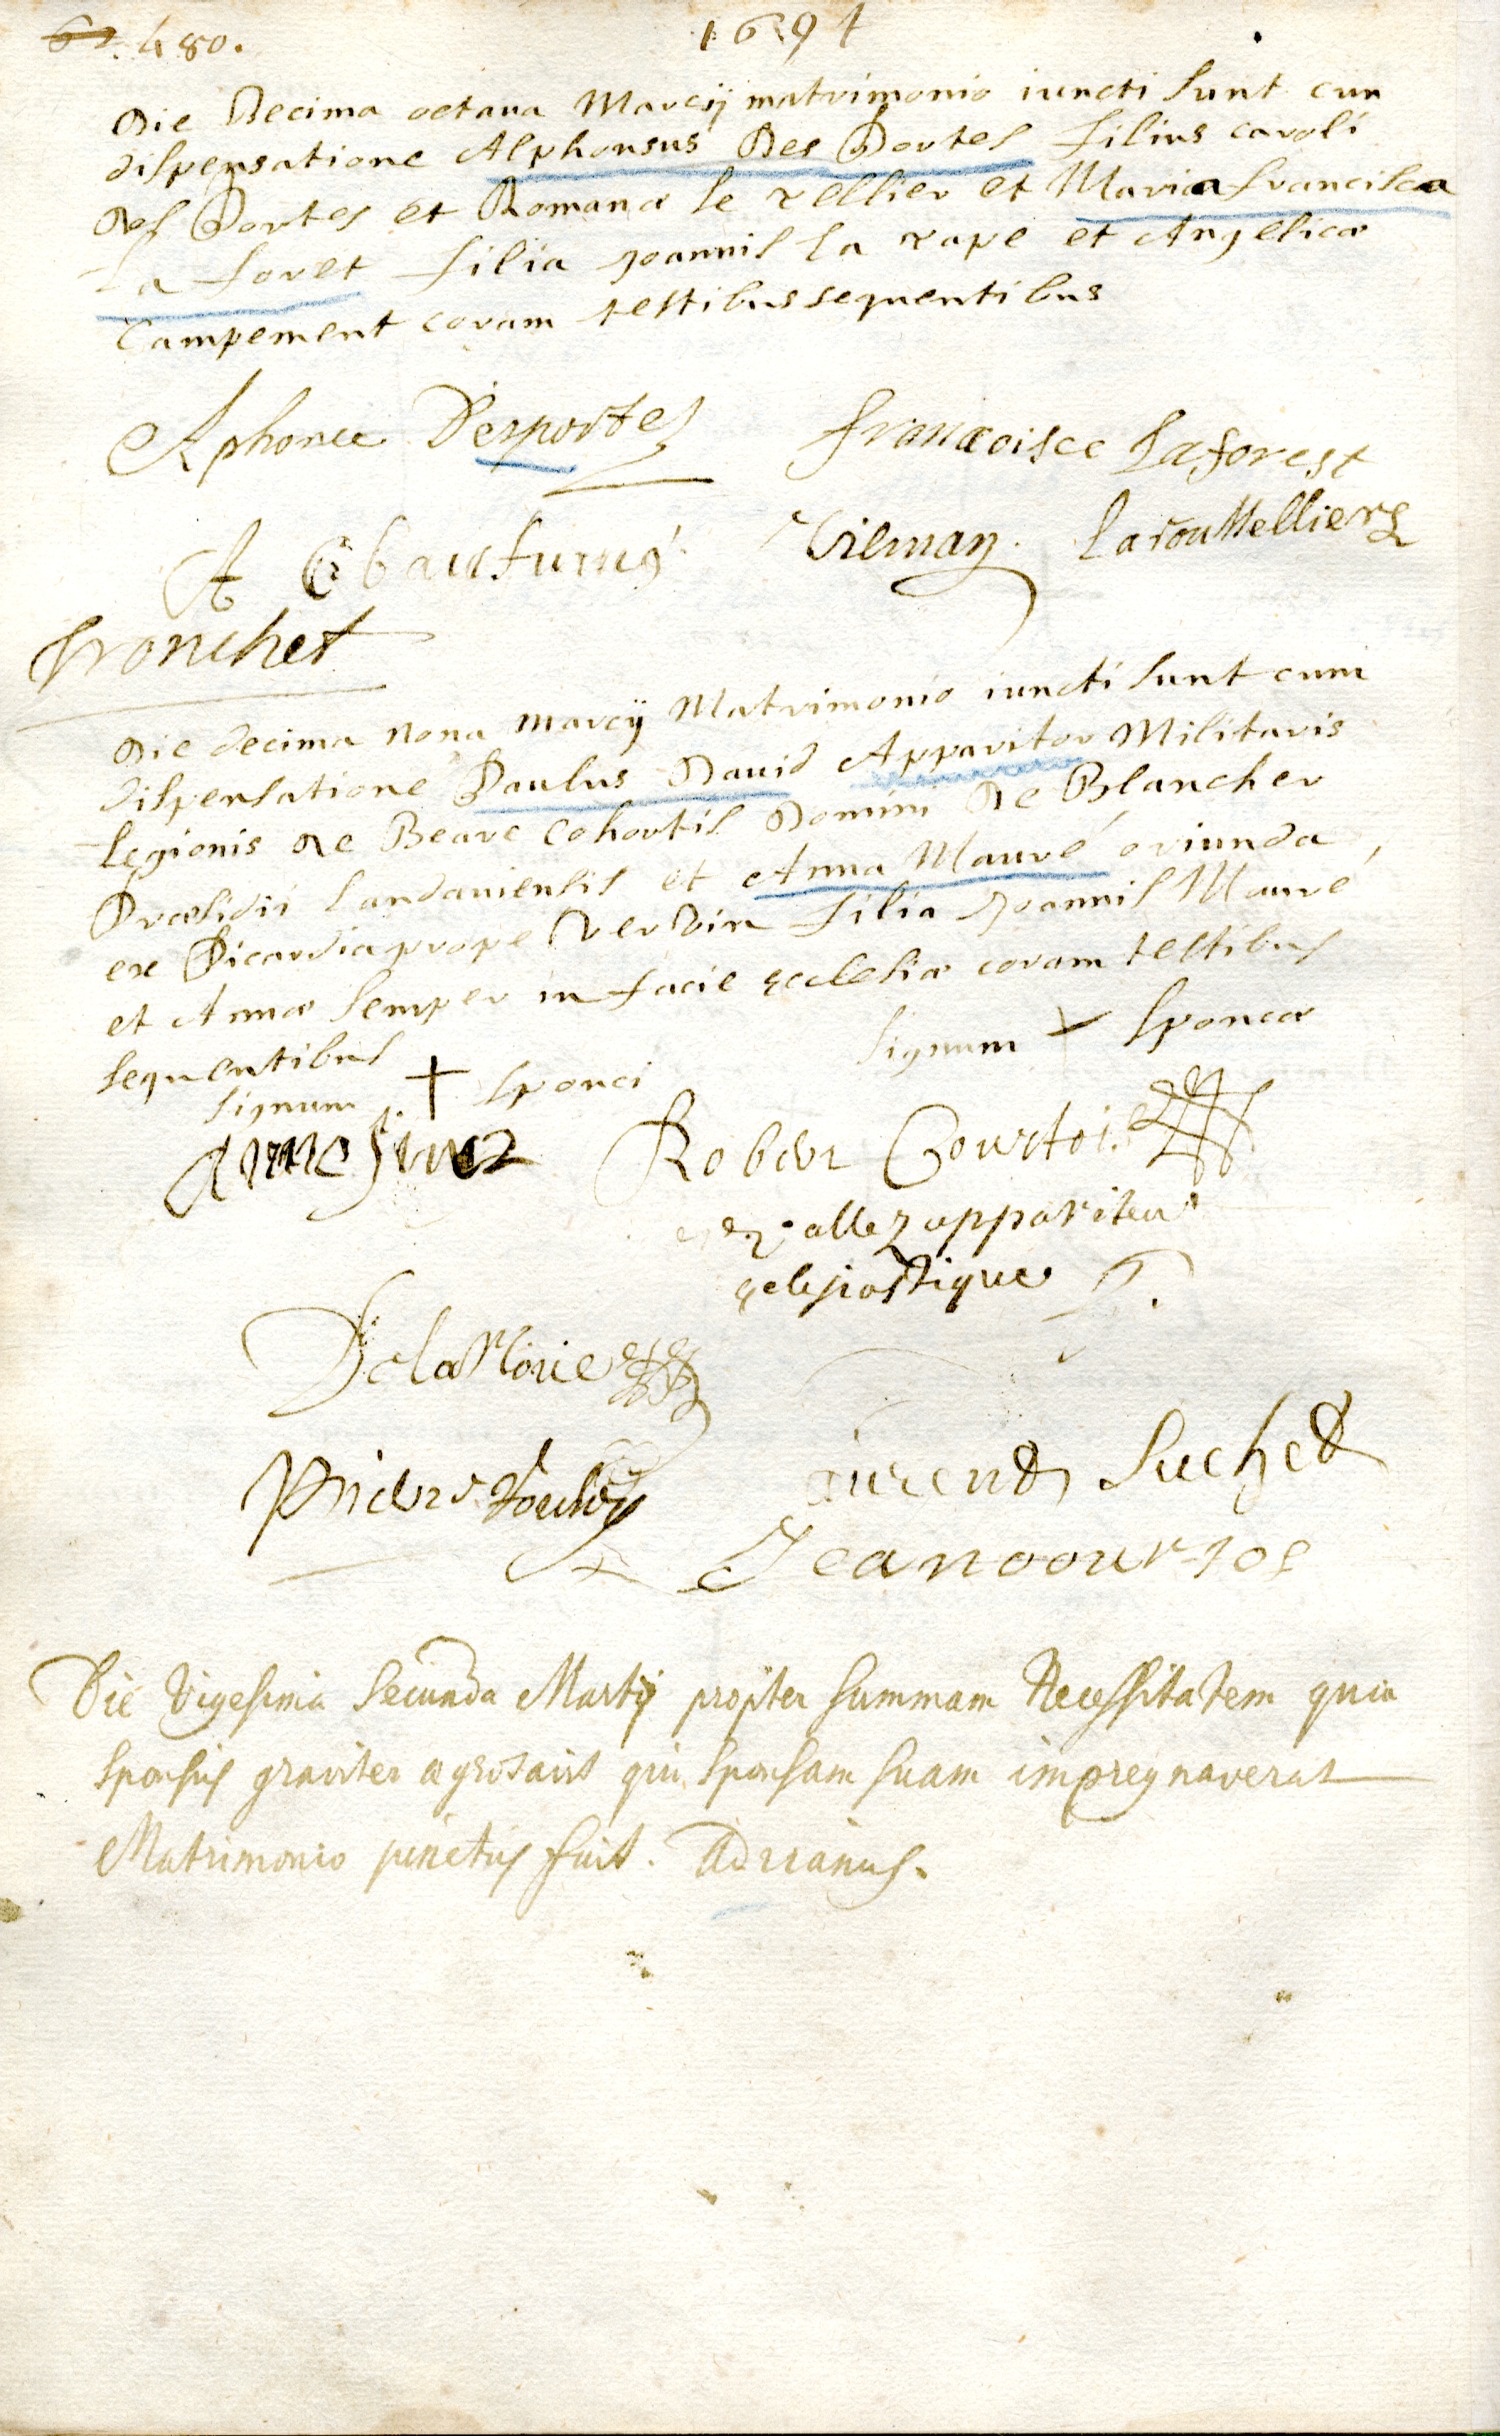 480.
1691
Die Decima octaua Marcij matrimonio iuncti sunt cum
dispensatione Alphonsus Des Portes filius caroli
des Portes et Romanæ le tellier et Maria francisca
La foret filia Joannis La rape et Angelicæ
Campement coram testibus sequentibus
Alphonce Desportes
francoisce Laforest
A
Vilmay.
tronchet
Die decima nona marcij Matrimonio iuncti sunt cum
dispensatione Paulus Dauid Apparitor Militaris
legionis de Bearc Cohortis Domini de Blancher
Præsidii Landauiensis et Anna Mauré oriunda
ex Picardia prope Vervin filia Joannis Mauré
et Annæ Semper in facie ecclesiæ coram testibus
sequentibus
signum + sponci
signum + sponcæ
Robert Courtois
allez appariteur
Delaplorie
Laurend Suched
Die Vigesima Secunda Martij propter summam Necessitatem quia
sponsus graviter ægrotavit qui sponsam suam impregnaverat
Matrimonio junctus fuit. Adrianus.